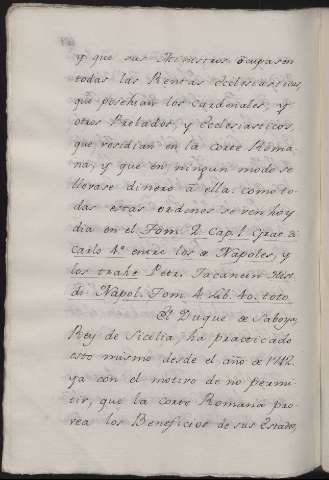 y que sus Ministros ocupasen
todas las Rentas Ecclesiasticas,
que posehian los Cardenales, y
otros Prelados, y Ecclesiasticos,
que residian en la Corte Roma-
na; y que en ningun modo se
llevase dinero à ella: como to-
das estas ordenes se ven hoy
dia en el Tom. 2. Cap.l. Grac. de
Carlo 4.º entre los de Napoles, y
los trahe Petr. Hist.
di Napol. Tom. 4. lib. 40. toto.
El Duque de Saboya,
Rey de Sicilia, ha practicado
esto mismo desde el año de 1712.
ya con el motivo de no permi-
tir, que la Corte Romana pro-
vea los Beneficios de sus Estados,